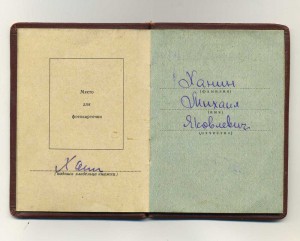 Место
для
фотокарточки
(подпись владельца книжки)
Ханин
(фамилия)
Михаил
(имя)
Яковлевич
(отчество)